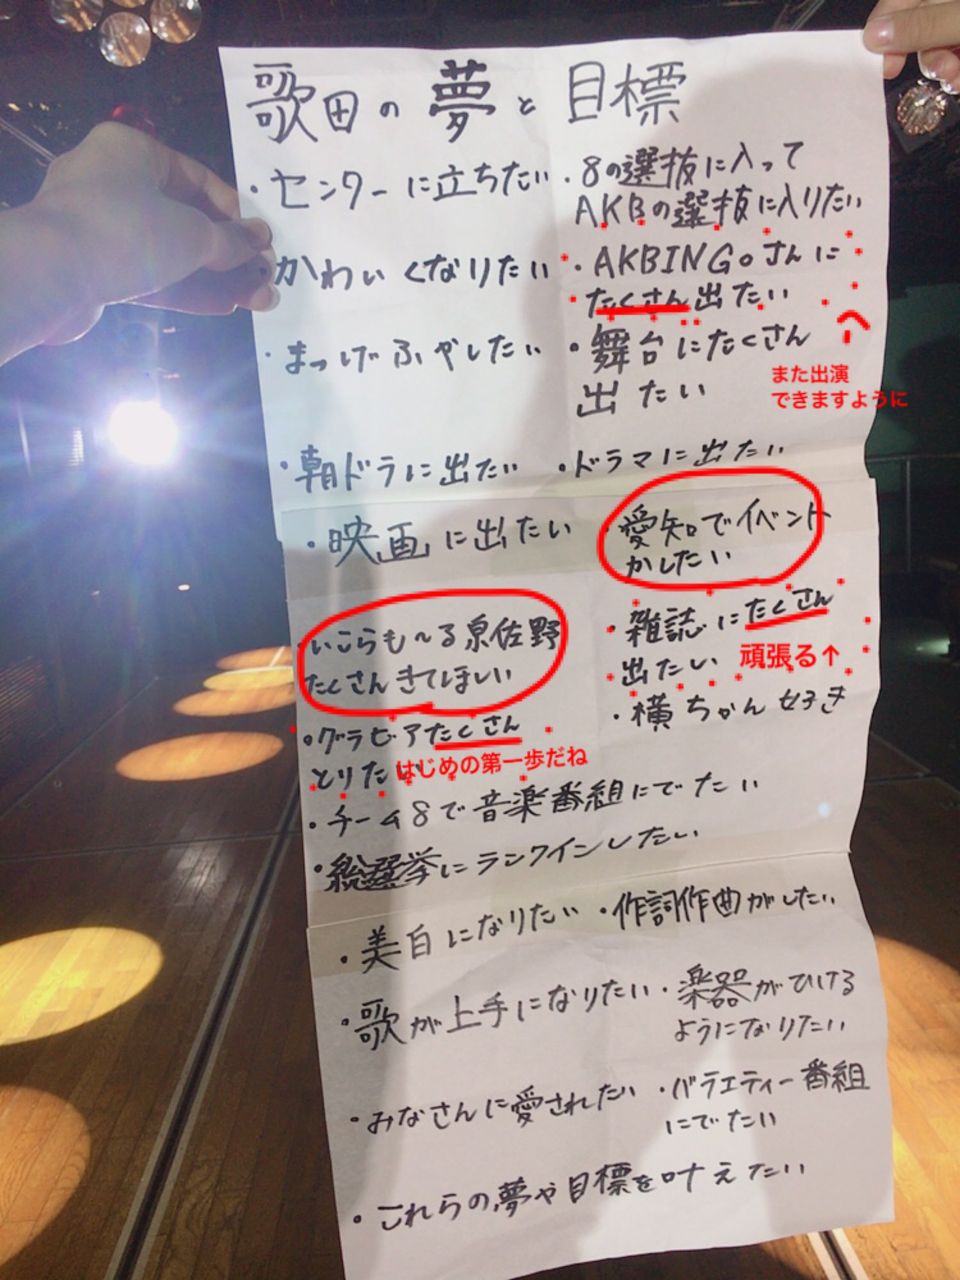 歌田の夢と目標
・センターに立ちたい
・8の選抜に入って
AKBの選抜に入りたい
かわいくなりたい
・AKBINGoさんに
たくさん出たい
・まつげふやしたい
・舞台にたくさん
出たい
また出演
できますように
・朝ドラに出たい
・ドラマに出たい
・映画に出たい
・愛知でイベント
がしたい
・いこらも〜る泉佐野
たくさんきてほしい
・雑誌にたくさん
出たい
頑張る↑
・グラビアたくさん
とりたい
はじめの第一歩だね
・横ちゃん好き
・チーム8で音楽番組にでたい
・総選挙にランクインしたい
・美白になりたい
・作詞作曲がしたい
・歌が上手になりたい
・楽器がひける
ようになりたい
・みなさんに愛されたい
・バラエティー番組
にでたい
・これらの夢や目標を叶えたい